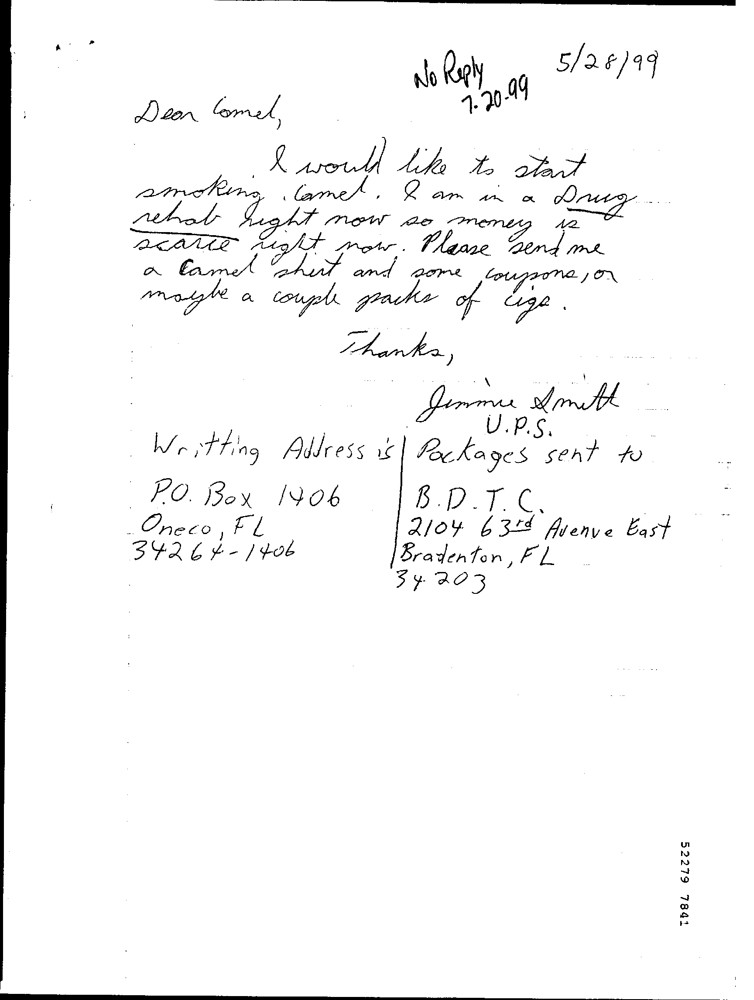 No Reply
7.20.99
5/28/99
Dear Camel,
I would like to start
smoking Camel. I am in a Drug
rehab right now so money is
scarce right now. Please send me
a Camel shirt and some coupons, or
maybe a couple packs of cigs.
Thanks,
Jimmie Smith
U.P.S.
Writting Address is
P.O. Box 1406
Oneco, FL
34264-1406
Packages sent to
B.D.T.C.
2104 63rd Avenue East
Bradenton, FL
34203
52279 7841